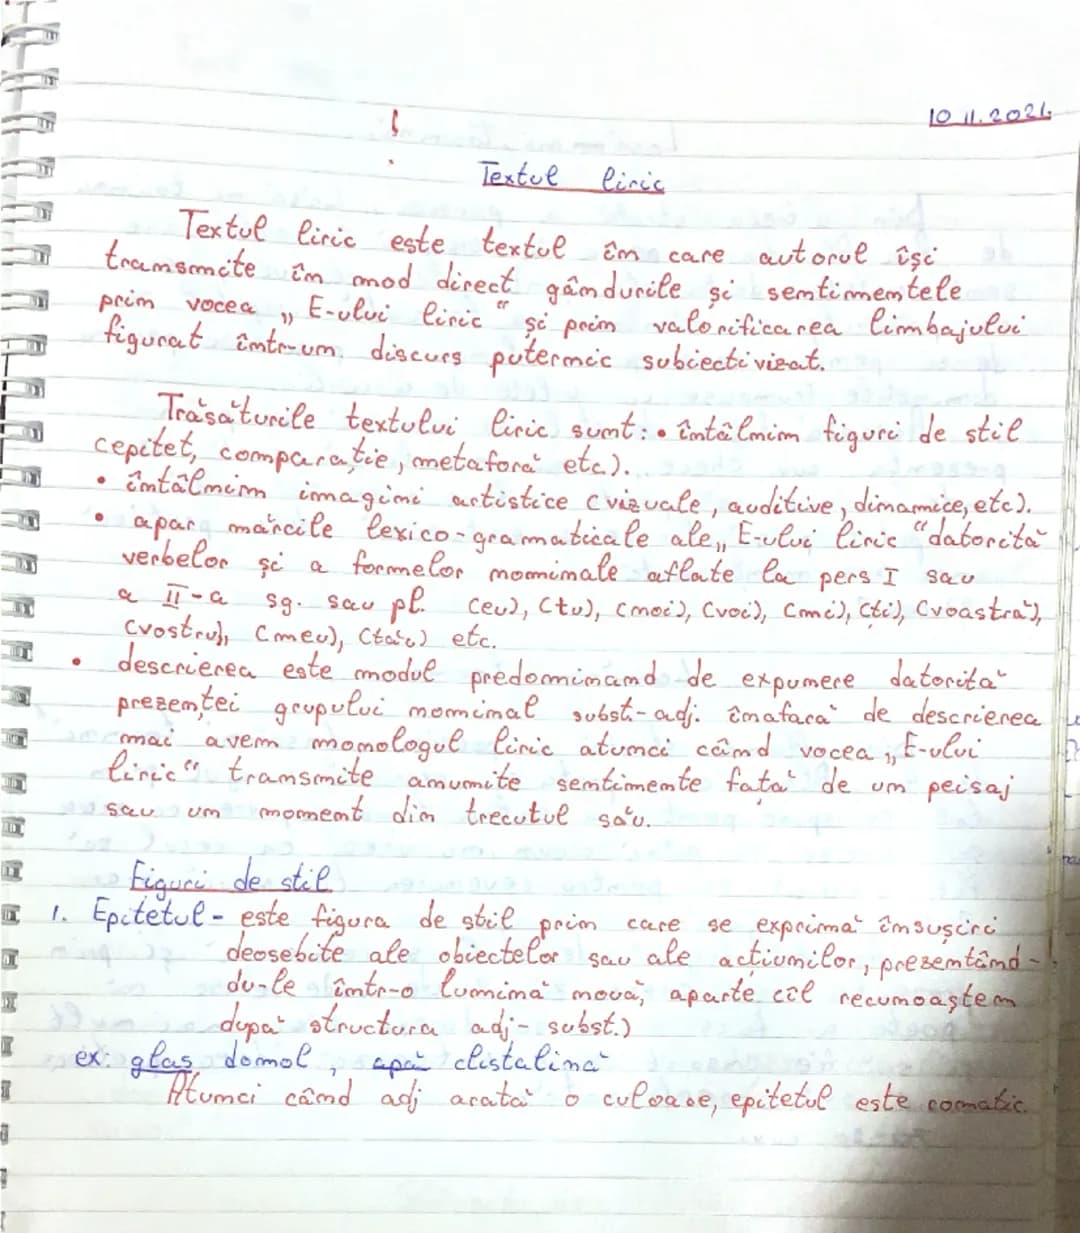 10.11.2021.
!
Textul liric
Textul liric este textul în care autorul își
transmite în mod direct gândurile și sentimentele
prin vocea „E-ului liric" și prin valorificarea limbajului
figurat într-un discurs puternic subiectivizat.
Trăsăturile textului liric sunt: • întâlnim figuri de stil
(epitet, comparație, metaforă etc).
• întâlnim imagini artistice (vizuale, auditive, dinamice, etc).
• apar mărcile lexico-gramaticale ale „E-ului liric" datorită
verbelor și a formelor nominale aflate la pers I sau
a II-a sg. sau pl. (eu), (tu), (noi), (voi), (mi), (ti), (voastră),
(vostru), (meu), (tăi) etc.
• descrierea este modul predominand de expunere datorită
prezenței grupului nominal subst-adj. înafară de descrierea
mai avem monologul liric atunci când vocea „E-ului
liric" transmite anumite sentimente față de un peisaj
sau un moment din trecutul său.
Figuri de stil
1. Epitetul - este figura de stil prin care se exprimă însușiri
deosebite ale obiectelor sau ale acțiunilor, prezentând-
du-le într-o lumină nouă, aparte (îl recunoaștem
după structura adj-subst.)
ex: glas domol, apă clistalină
Atunci când adj arată o culoare, epitetul este comatic.